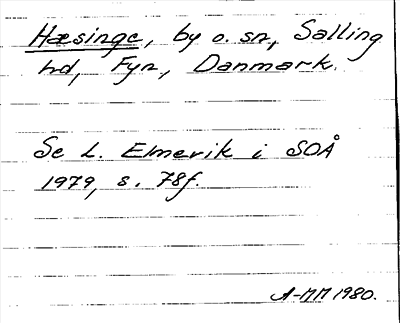 Hæsinge, by o. sn, Salling
hd, Fyn, Danmark.
Se L. Elmevik i SOÅ
1979, s. 78f.
A-MM 1980.